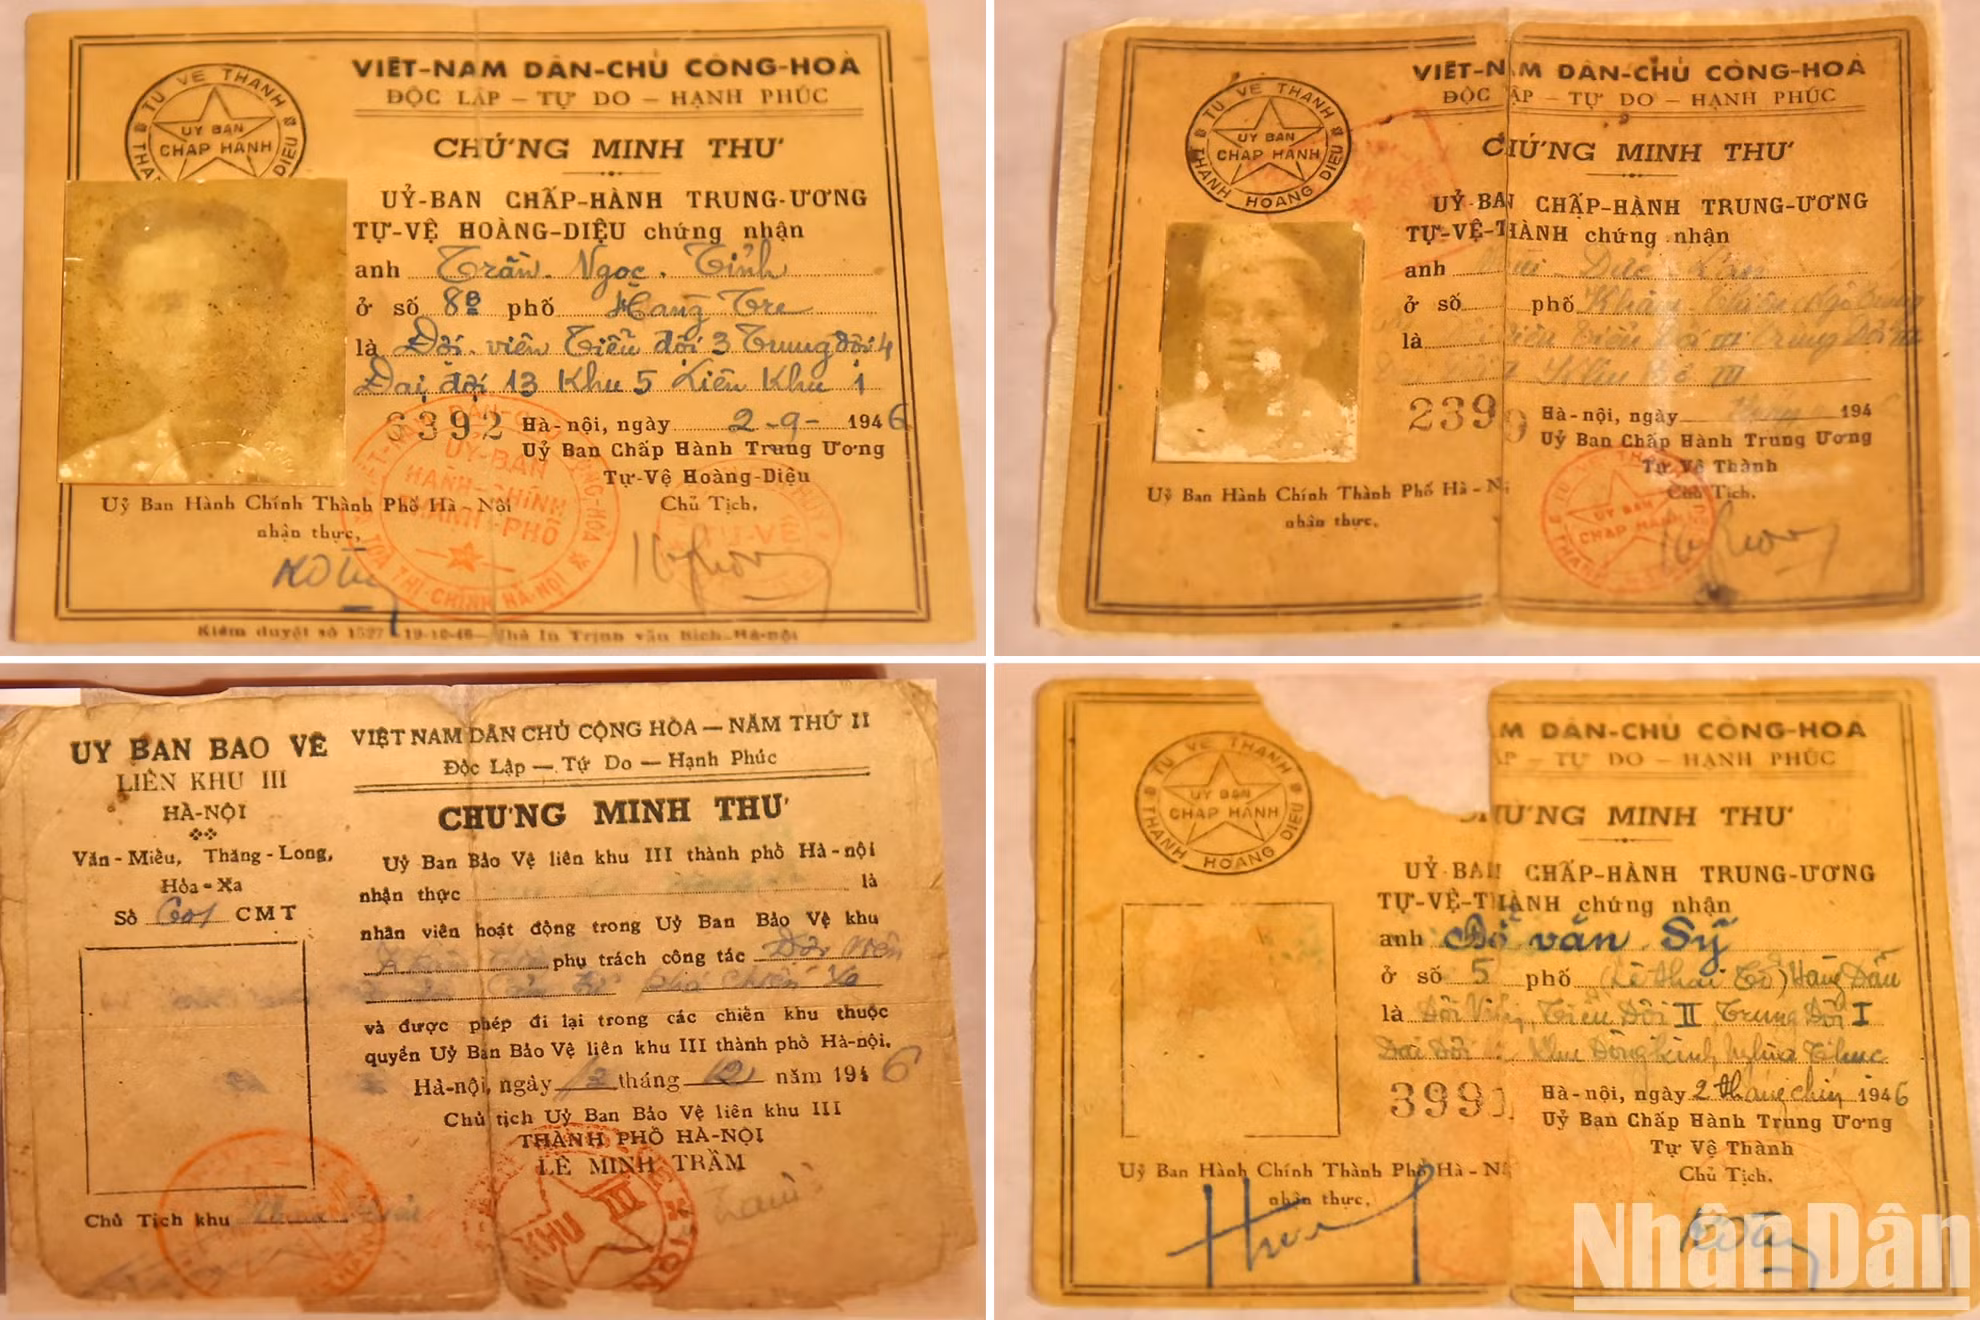 TỰ VỆ THÀNH
THÀNH HOÀNG DIỆU
UỶ BAN
CHẤP HÀNH
VIỆT-NAM DÂN-CHỦ CỘNG-HOÀ
ĐỘC LẬP - TỰ DO - HẠNH PHÚC
CHỨNG MINH THƯ
UỶ-BAN CHẤP-HÀNH TRUNG-ƯƠNG
TỰ-VỆ HOÀNG-DIỆU chứng nhận
anh Trần Ngọc Tỉnh
ở số 8B phố Hàng Tre
là Đội viên Tiểu đội 3 Trung đội 4
Đại đội 13 Khu 5 Liên Khu 1
6392 Hà-nội, ngày 2-9- 1946
Uỷ Ban Chấp Hành Trung Ương
Tự-Vệ Hoàng-Diệu
Chủ Tịch,
Uỷ Ban Hành Chính Thành Phố Hà-Nội
nhận thực,
UỶ-BAN
HÀNH-CHÍNH
THÀNH-PHỐ
TỰ-VỆ
Kiểm duyệt số 1527 19-10-46 - Nhà In Trịnh văn Bích-Hà-nội
TỰ VỆ THÀNH
THÀNH HOÀNG DIỆU
UỶ BAN
CHẤP HÀNH
VIỆT-NAM DÂN-CHỦ CỘNG-HOÀ
ĐỘC LẬP - TỰ DO - HẠNH PHÚC
CHỨNG MINH THƯ
UỶ-BAN CHẤP-HÀNH TRUNG-ƯƠNG
TỰ-VỆ-THÀNH chứng nhận
anh Đức
ở số phố Khâm Thiên
là Tiểu Đội III Trung Đội
Khu III
2399 Hà-nội, ngày 194
Uỷ Ban Chấp Hành Trung Ương
Tự Vệ Thành
Chủ Tịch,
Uỷ Ban Hành Chính Thành Phố Hà-N
nhận thực,
UỶ BAN
CHẤP HÀNH
UỶ BAN BẢO VỆ
LIÊN KHU III
HÀ-NỘI
Văn-Miếu, Thăng-Long,
Hỏa-Xa
Số 601 CMT
Chủ Tịch khu
VIỆT NAM DÂN CHỦ CỘNG HÒA — NĂM THỨ II
Độc Lập — Tứ Do — Hạnh Phúc
CHỨNG MINH THƯ
Uỷ Ban Bảo Vệ liên khu III thành phố Hà-nội
nhận thực là
nhân viên hoạt động trong Uỷ Ban Bảo Vệ khu
phụ trách công tác Đội viên
phá chiến xa
và được phép đi lại trong các chiến khu thuộc
quyền Uỷ Ban Bảo Vệ liên khu III thành phố Hà-nội.
Hà-nội, ngày 12 tháng 12 năm 1946
Chủ tịch Uỷ Ban Bảo Vệ liên khu III
THÀNH PHỐ HÀ-NỘI
LÊ MINH TRẦM
KHU III
TỰ VỆ THÀNH
THÀNH HOÀNG DIỆU
UỶ BAN
CHẤP HÀNH
M DÂN-CHỦ CỘNG-HOÀ
ẬP - TỰ DO - HẠNH PHÚC
CHỨNG MINH THƯ
UỶ-BAN CHẤP-HÀNH TRUNG-ƯƠNG
TỰ-VỆ-THÀNH chứng nhận
anh Đỗ văn Sỹ
ở số 5 phố (Lê Thái Tổ) Hàng Dầu
là Đội Viên, Tiểu Đội II Trung Đội I
Đại Đội Khu Đông Kinh Nghĩa Thục
3991 Hà-nội, ngày 2 tháng chín 1946
Uỷ Ban Chấp Hành Trung Ương
Tự Vệ Thành
Chủ Tịch,
Uỷ Ban Hành Chính Thành Phố Hà-N
nhận thực,
Nhân Dân